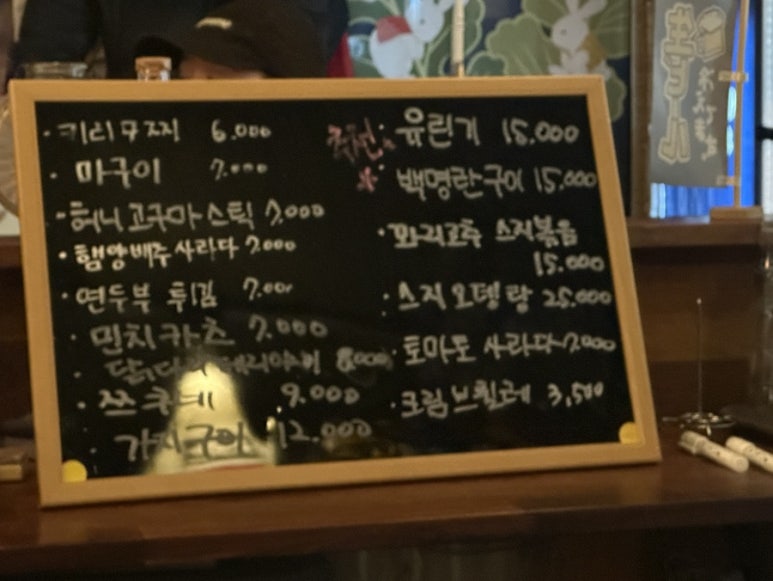 · 키리모찌 6.000
· 마구이 7.000
· 허니고구마스틱 7.000
· 햄양배추사라다 7.000
· 연두부 튀김 7.000
· 민치카츠 7.000
8,000
· 쯔쿠네 9.000
· 가지구이 12.000
추천 · 유린기 15.000
· 백명란구이 15.000
· 꽈리고추 스지볶음
15.000
· 스지오뎅탕 25.000
· 토마토 사라다 7.000
· 크림브륄레 3,500